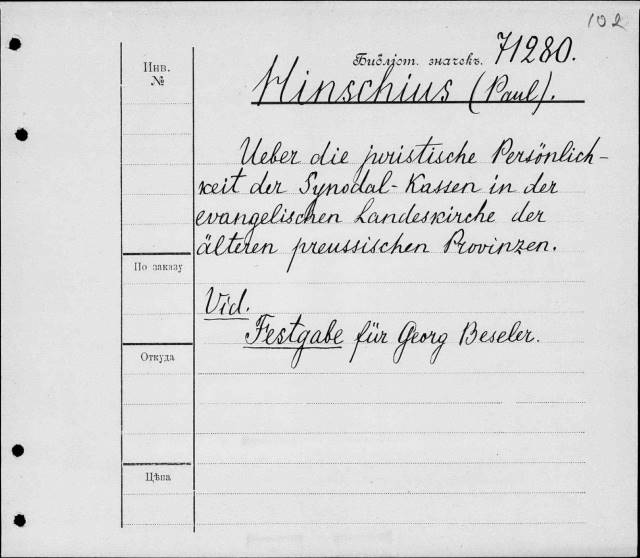 102
Библіот. значекъ. 71280.
Инв.
№
Hinschius (Paul).
Ueber die juristische Persönlich-
keit der Synodal-Kassen in der
evangelischen Landeskirche der
älteren preussischen Provinzen.
По заказу
Vid.
Festgabe für Georg Beseler.
Откуда
Цѣна